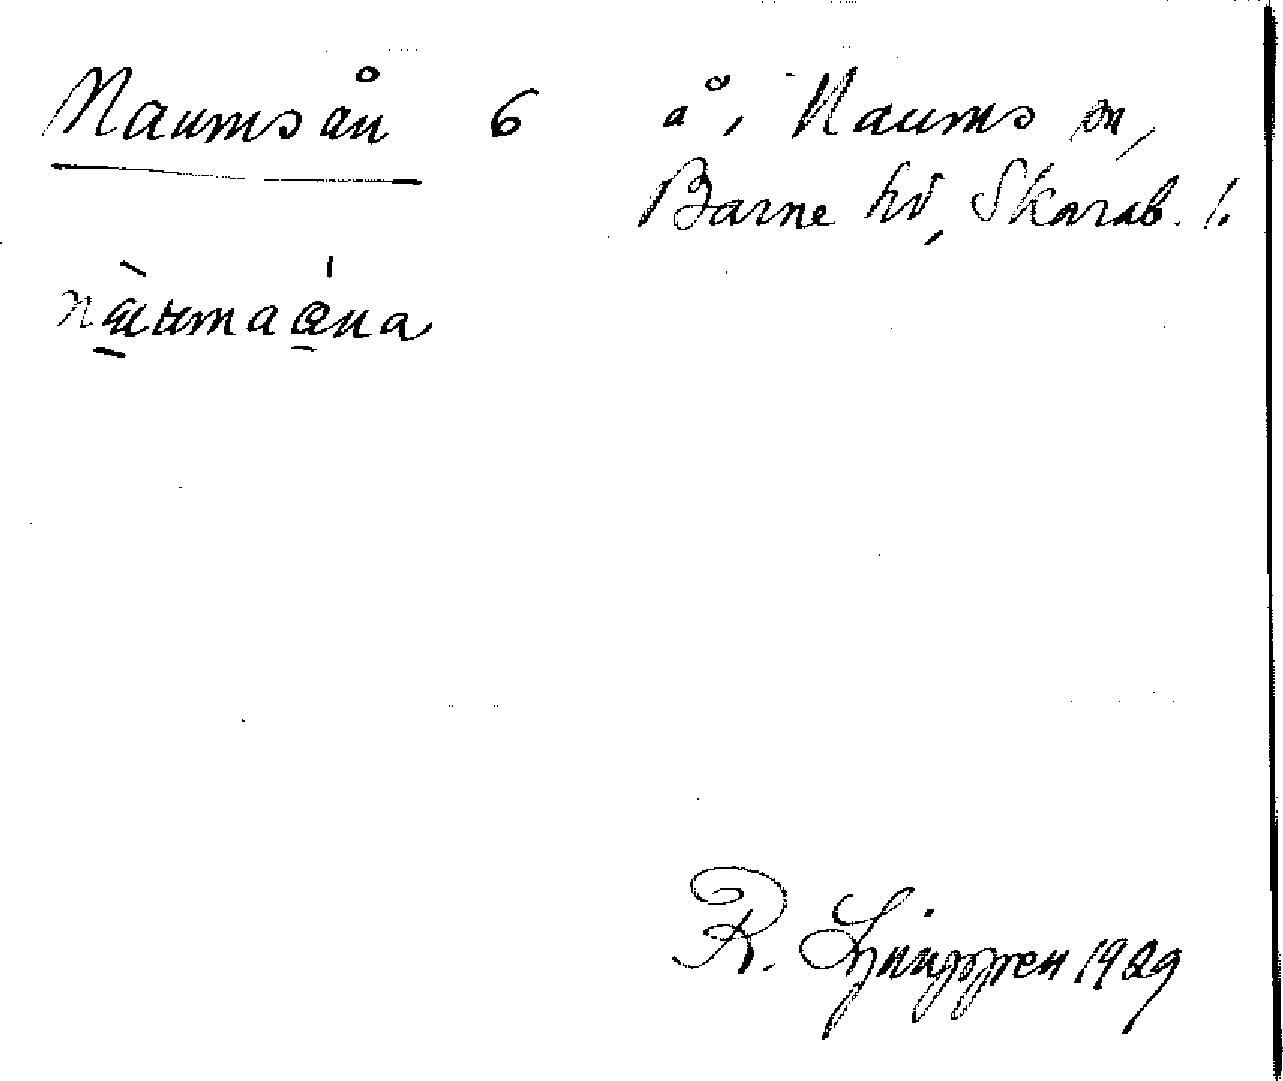 Naumsån 6 å, Naums sn,
Barne hd, Skarab. l.
R. Ljunggren 1929